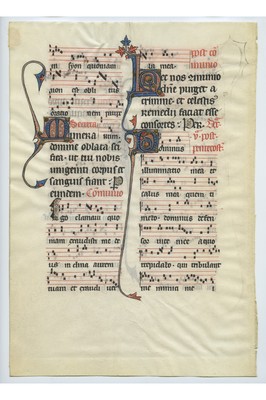 in syon quoniam
non est obli tus
Munera
domine oblata sci
fica. ut tui nobis
unigeniti corpus et
sanguis fiant. P
eundem. Comunio
Ego clamaui quo
niam exaudisti me de
us inclina aurem
tuam et exaudi uer
ba mea. post co
munio
Hec nos comunio
domine purget a
crimine et celestis
remedii faciat esse
consortes. Per.
v. post
Dominus
illuminatio mea et
salus mea quem ti
mebo dominus defen
sor uite mee a quo
trepidabo. qui tribulant
me inimici mei